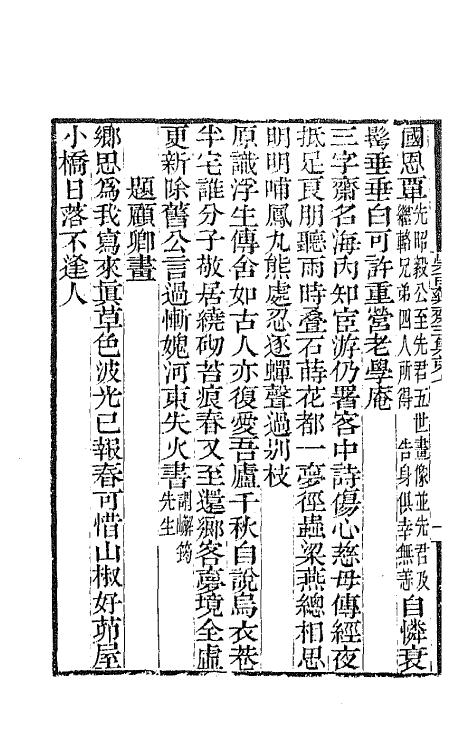 國恩單先昭毅公至先君五世畫像並先君及
繼輅兄弟四人所得　告身俱幸無恙自憐衰
鬓垂垂白可許重營老學庵
三字齋名海內知宦游仍署客中詩傷心慈母傳經夜
抵足良朋聽雨時疊石蒔花都一夢徑蟲梁燕總相思
明明哺鳳九熊處忍逐蟬聲過別枝
原識浮生傳舍如古人亦復愛吾廬千秋自說烏衣巷
半宅誰分子敬居繞砌苔痕春又至還鄉客夢境全虛
更新除舊公言過慚媿河東失火書謝嶰筠
先生
題顧卿畫
鄉思為我寫來真草色波光已報春可惜山椒好茆屋
小橋日落不逢人